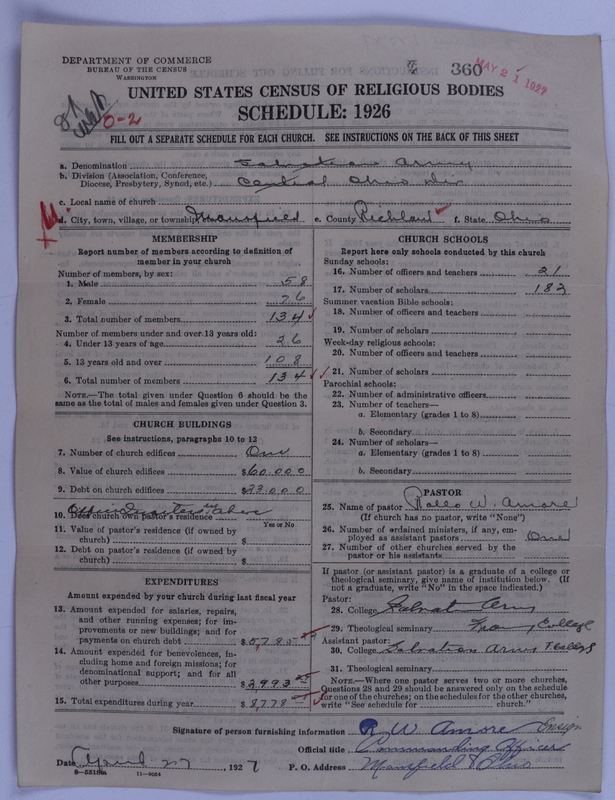 DEPARTMENT OF COMMERCE
BUREAU OF THE CENSUS
WASHINGTON
360
MAY 21 1927
0-2
UNITED STATES CENSUS OF RELIGIOUS BODIES
SCHEDULE: 1926
FILL OUT A SEPARATE SCHEDULE FOR EACH CHURCH. SEE INSTRUCTIONS ON THE BACK OF THIS SHEET
a. Denomination Salvation Army
b. Division (Association, Conference, Diocese, Presbytery, Synod, etc.) Central Ohio Div
c. Local name of church
d. City, town, village, or township Mansfield e. County Richland f. State Ohio
MEMBERSHIP
Report number of members according to definition of
member in your church
Number of members, by sex:
1. Male 58
2. Female 76
3. Total number of members 134
Number of members under and over 13 years old:
4. Under 13 years of age 26
5. 13 years old and over 108
6. Total number of members 134
NOTE.—The total given under Question 6 should be the
same as the total of males and females given under Question 3.
CHURCH BUILDINGS
See instructions, paragraphs 10 to 12
7. Number of church edifices One
8. Value of church edifices $60,000
9. Debt on church edifices $23,000
10. Does church own pastor's residence
Yes or No
11. Value of pastor's residence (if owned by
church) $
12. Debt on pastor's residence (if owned by
church) $
EXPENDITURES
Amount expended by your church during last fiscal year
13. Amount expended for salaries, repairs,
and other running expenses; for im-
provements or new buildings; and for
payments on church debt $5,785
14. Amount expended for benevolences, in-
cluding home and foreign missions; for
denominational support; and for all
other purposes $2993
15. Total expenditures during year $8778
CHURCH SCHOOLS
Report here only schools conducted by this church
Sunday schools:
16. Number of officers and teachers 21
17. Number of scholars 182
Summer vacation Bible schools:
18. Number of officers and teachers
19. Number of scholars
Week-day religious schools:
20. Number of officers and teachers
21. Number of scholars
Parochial schools:
22. Number of administrative officers
23. Number of teachers—
a. Elementary (grades 1 to 8)
b. Secondary
24. Number of scholars—
a. Elementary (grades 1 to 8)
b. Secondary
PASTOR
25. Name of pastor Rollo W. Amore
(If church has no pastor, write "None")
26. Number of ordained ministers, if any, em-
ployed as assistant pastors One
27. Number of other churches served by the
pastor or his assistants
If pastor (or assistant pastor) is a graduate of a college or
theological seminary, give name of institution below. (If
not a graduate, write "No" in the space indicated.)
Pastor:
28. College Salvation Army
29. Theological seminary College
Assistant pastor:
30. College Salvation Army
31. Theological seminary
NOTE.—Where one pastor serves two or more churches,
Questions 28 and 29 should be answered only on the schedule
for one of the churches; on the schedules for the other churches,
write "See schedule for church."
Signature of person furnishing information R. W. Amore Ensign
Official title Commanding Officer
Date April 27, 1927 P. O. Address Mansfield Ohio
11—9084